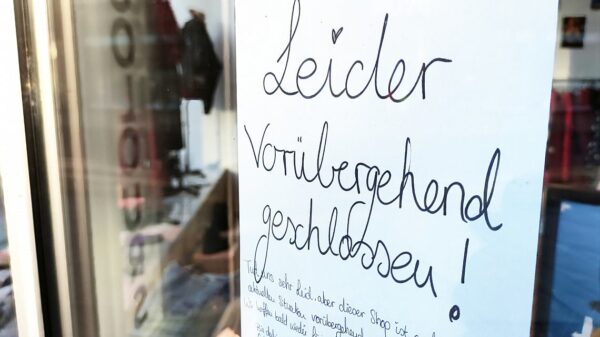 Leider
Vorübergehend
geschlossen!
Tut uns sehr leid, aber dieser Shop ist
aktuellen Situation vorübergehend
wir hoffen bald wieder